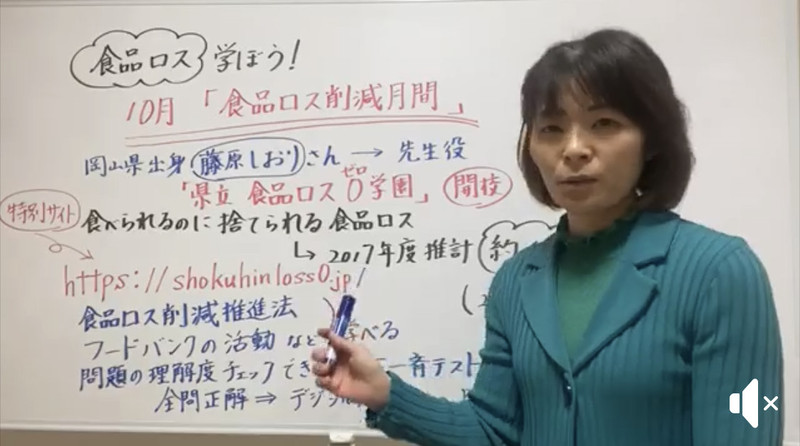 食品ロス 学ぼう!
10月「食品ロス削減月間」
岡山県出身 藤原しおりさん → 先生役
ゼロ
「県立 食品ロス0学園」 開校
特別サイト
食べられるのに捨てられる食品ロス
↳ 2017年度推計 約
https://shokuhinloss0.jp/
(2
食品ロス削減推進法
フードバンクの活動など学べる
問題の理解度チェックでき 一斉テスト
全問正解 ⇒ デジ